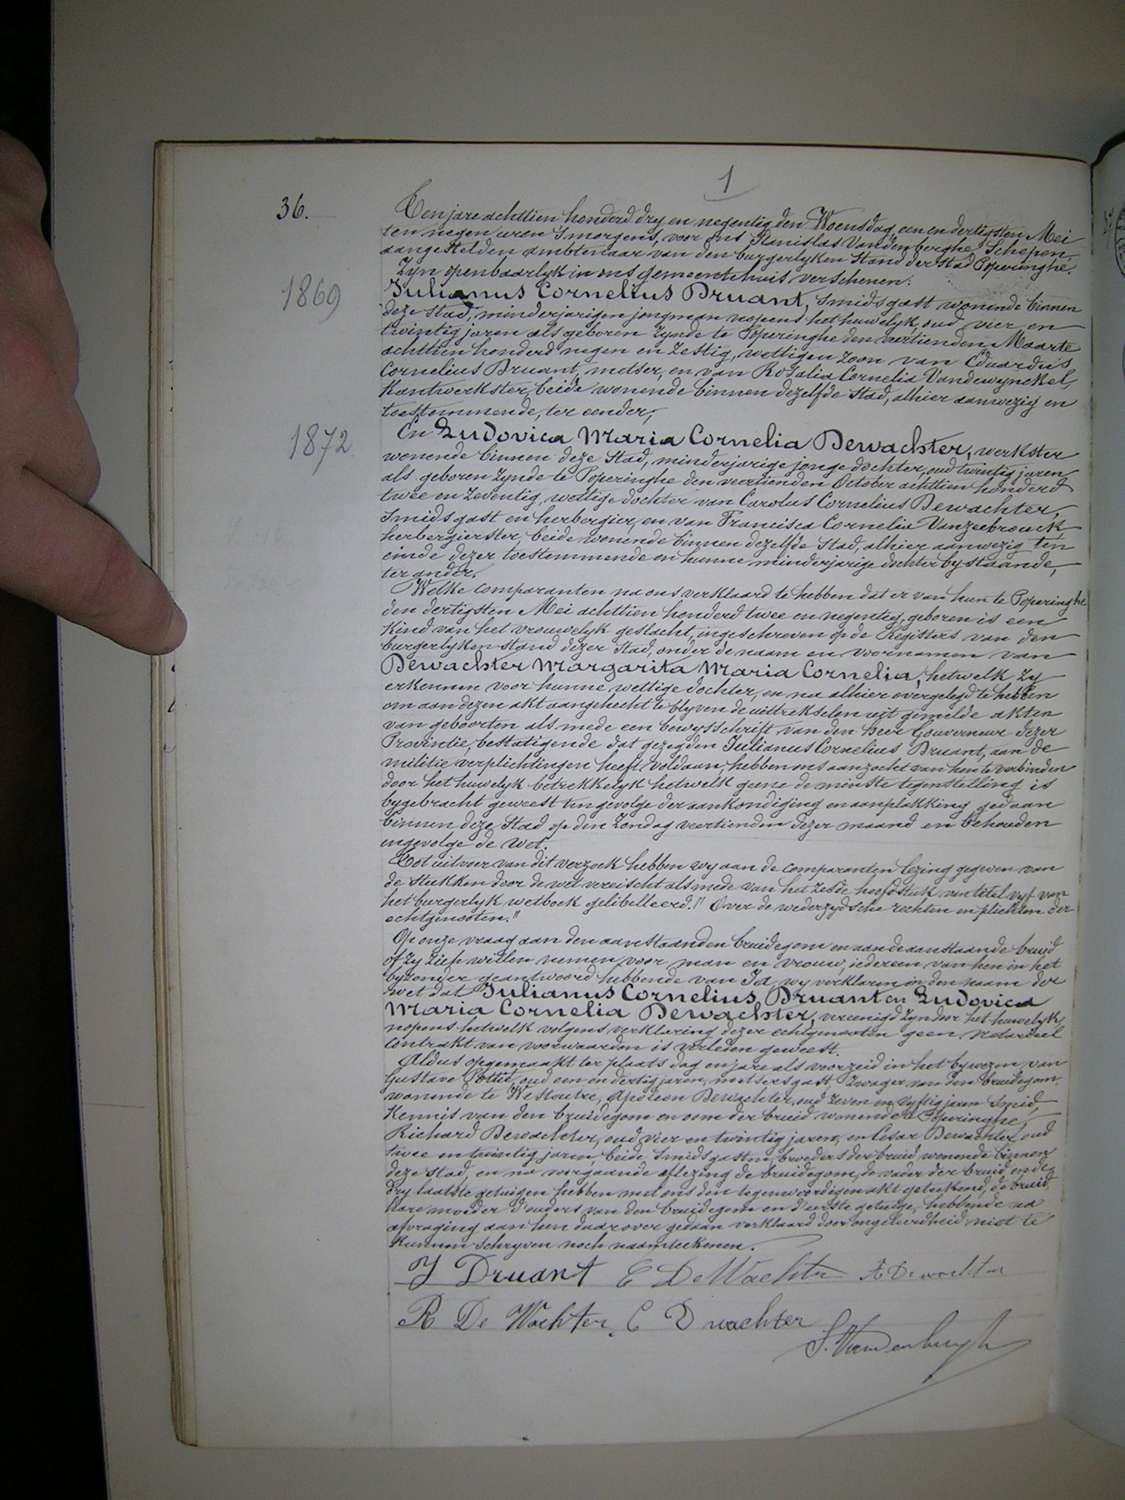 1
36.
Ten jare achttien honderd dry en negentig den Woensdag een en dertigsten Mei
ten negen uren 's morgens, voor ons Stanislas Vandenberghe Schepen
aangestelden ambtenaar van den burgerlyken Stand der Stad Poperinghe.
Zyn openbaarlyk in ons gemeentehuis verschenen:
1869
Julianus Cornelius Druant, Smidsgast wonende binnen
deze Stad, minderjarigen jongman nopens het huwelyk, oud vier en
twintig jaren als geboren zynde te Poperinghe den veertienden Maarte
achttien honderd negen en zestig, wettigen zoon van Eduardus
Cornelius Druant, metser, en van Rosalia Cornelia Vandewynckel
Kantwerkster, beide wonende binnen dezelfde Stad, alhier aanwezig en
toestemmende, ter eender,
1872
En Ludovica Maria Cornelia Dewachter, werkster
wonende binnen deze Stad, minderjarige jongedochter, oud twintig jaren
als geboren zynde te Poperinghe den veertienden October achttien honderd
twee en zeventig, wettige dochter van Carolus Cornelius Dewachter,
Smidsgast en herbergier, en van Francisca Cornelia Vanzebrouck
herbergierster, beide wonende binnen dezelfde Stad, alhier aanwezig ten
einde dezer toestemmende en hunne minderjarige dochter bystaande,
ter ander.
Welke comparanten na ons verklaard te hebben dat er van hun te Poperinghe
den dertigsten Mei achttien honderd twee en negentig, geboren is een
Kind van het vrouwelyk geslacht, ingeschreven op de Registers van den
burgerlyken stand dezer Stad, onder de naam en voornamen van
Dewachter Margarita Maria Cornelia, hetwelk zy
erkennen voor hunne wettige dochter, en na alhier overgelegd te hebben
om aan dezen akt aangehecht te blyven de uittrekselen uit gemelde akten
van geboorten als mede een bewysschrift van den heer Gouverneur dezer
Provintie, bestatigende dat gezegden Julianus Cornelius Druant, aan de
militie verplichtingen heeft voldaan, hebben ons aanzocht van hen te verbinden
door het huwelyk betrekkelyk hetwelk geene de minste tegenstelling is
bygebracht geweest ten gevolge der aankondiging en aanplakking gedaan
binnen deze Stad op den Zondag veertienden dezer maand en behouden
ingevolge de wet.
Tot uitvoer van dit verzoek hebben wy aan de comparanten lezing gegeven van
de stukken door de wet vereischt als mede van het zesde hoofdstuk van titel vyf van
het burgerlyk wetboek gelibelleerd: " Over de wederzydsche rechten en plichten der
echtgenooten."
Op onze vraag aan den aanstaanden bruidegom en aan de aanstaande bruid
of zy zich willen nemen voor man en vrouw, iedereen van hen in het
byzonder geantwoord hebbende van Ja, wy verklaren in den naam der
wet dat Julianus Cornelius Druant en Ludovica
Maria Cornelia Dewachter, vereenigd zyn door het huwelyk,
nopens hetwelk volgens verklaring dezer echtgenooten geen notarieel
contrakt van voorwaarden is verleden geweest.
Aldus opgemaakt ter plaats dag en jare als voorzeid in het bywezen van
Gustave oud een en dertig jaren, metsersgast Zwager van den bruidegom
wonende te Westoutre, Dewachter, oud zeven en vyftig jaren Smid,
Kennis van den bruidegom en oom der bruid wonende te Poperinghe,
Richard Dewachter, oud vier en twintig jaren, en Cesar Dewachter, oud
twee en twintig jaren, beide Smidsgasten, broeders der bruid wonende binnen
deze Stad, en na voorgaande aflezing de bruidegom, de vader der bruid en de
dry laatste getuigen hebben met ons den tegenwoordigen akt geteekend, de bruid,
hare moeder d'ouders van den bruidegom en d'eerste getuige, hebbende na
afvraging aan hen daarover gedaan verklaard door ongeleerdheid niet te
kunnen schryven noch naamteekenen.
J Druant C DeWachter A Dewachter
R De Wachter, C D wachter
S. Vandenberghe